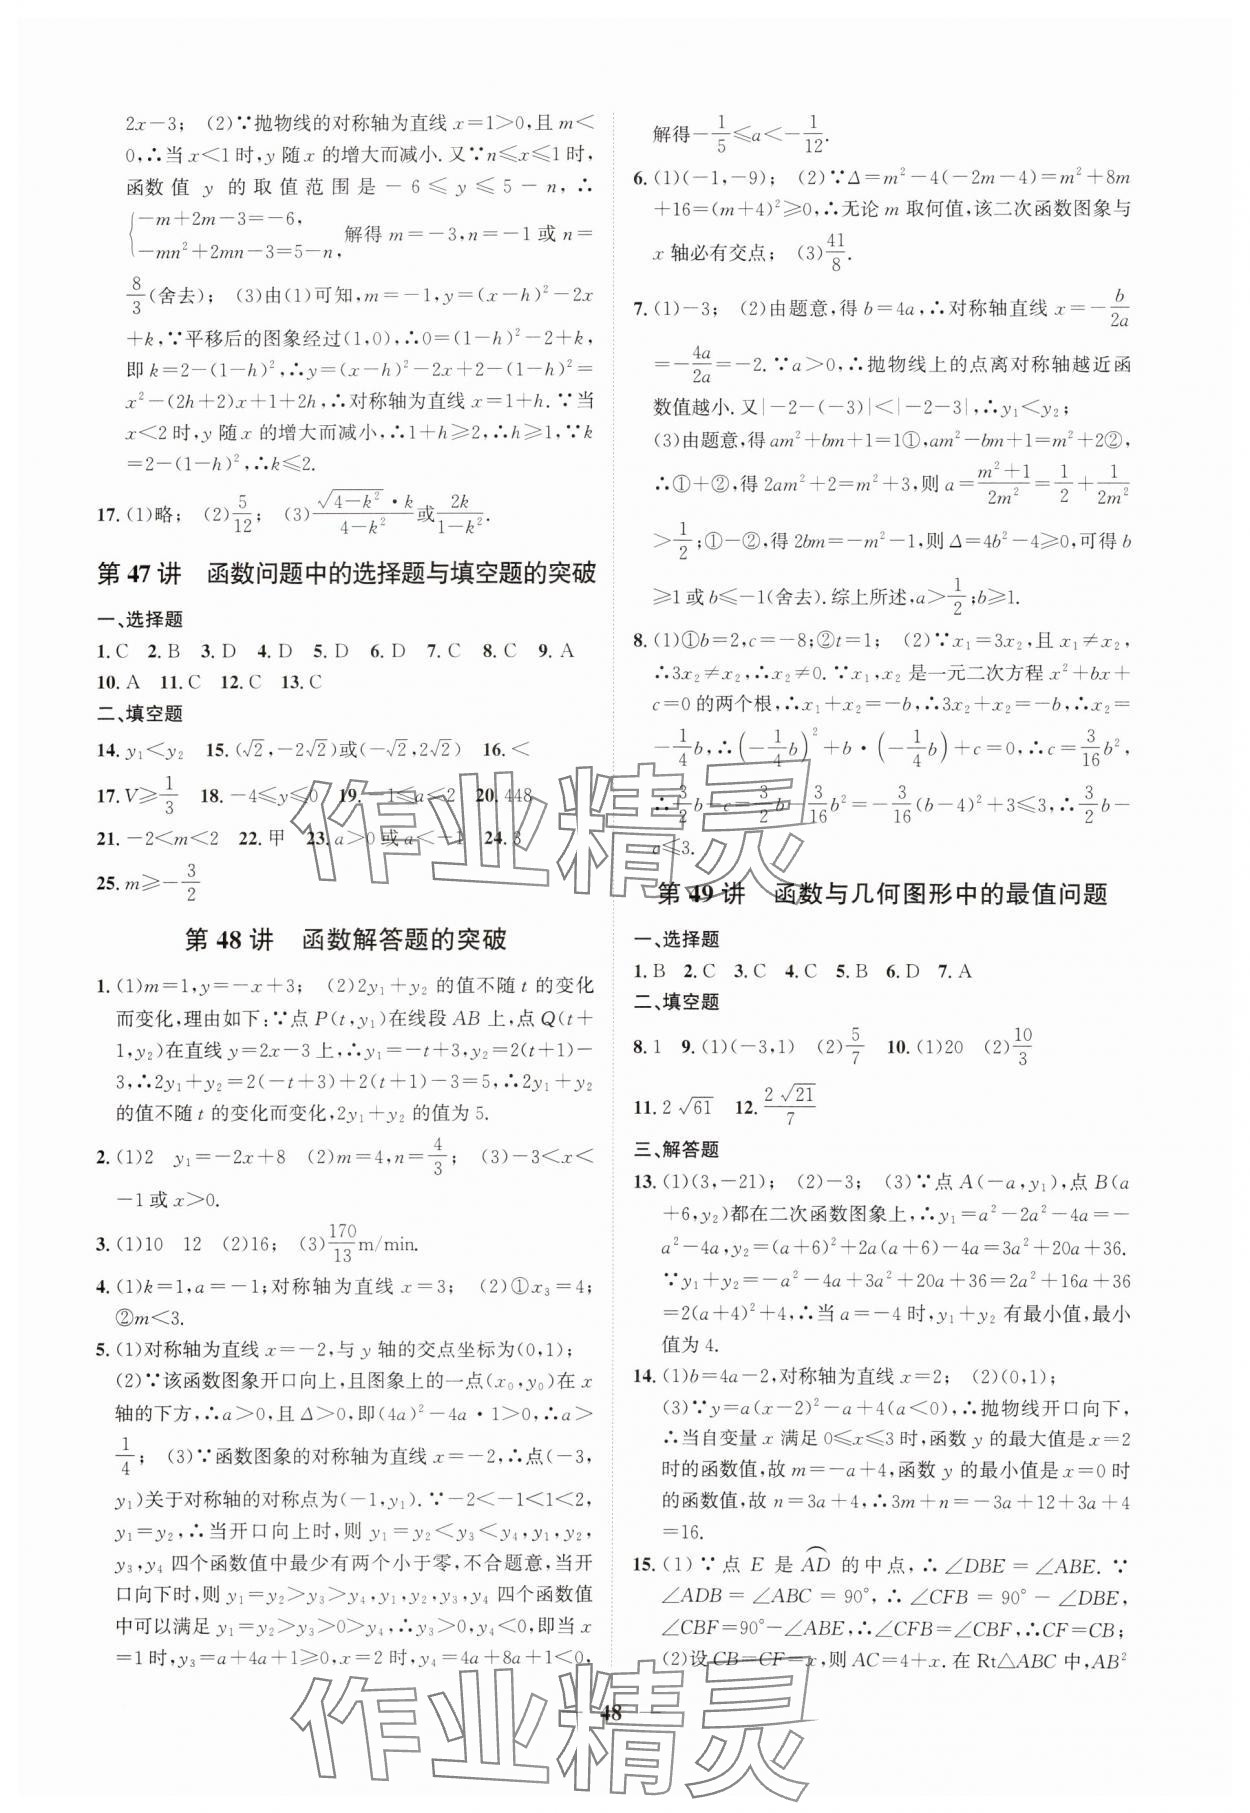 2x－3； (2)∵抛物线的对称轴为直线 x＝1＞0,且 m＜
0,∴当 x＜1 时,y 随 x 的增大而减小. 又∵n≤x≤1 时,
函数值 y 的取值范围是－6≤y≤5－n,∴
{－m＋2m－3＝－6, －mn²＋2mn－3＝5－n, 解得 m＝－3,n＝－1 或 n＝
8/3(舍去)； (3)由(1)可知,m＝－1,y＝(x－h)²－2x
＋k,∵平移后的图象经过(1,0),∴0＝(1－h)²－2＋k,
即 k＝2－(1－h)²,∴y＝(x－h)²－2x＋2－(1－h)²＝
x²－(2h＋2)x＋1＋2h,∴对称轴为直线 x＝1＋h. ∵当
x＜2 时,y 随 x 的增大而减小,∴1＋h≥2,∴h≥1,∵k
＝2－(1－h)²,∴k≤2.
17. (1)略； (2)5/12； (3)√(4－k²)·k/(4－k²)或2k/(1－k²).
第 47 讲 函数问题中的选择题与填空题的突破
一、选择题
1. C 2. B 3. D 4. D 5. D 6. D 7. C 8. C 9. A
10. A 11. C 12. C 13. C
二、填空题
14. y₁＜y₂ 15. (√2,－2√2)或(－√2,2√2) 16. ＜
17. V≥1/3 18. －4≤y≤0 19. －1≤a≤2 20. 448
21. －2＜m＜2 22. 甲 23. a＞0 或 a＜－1 24. 3
25. m≥－3/2
第 48 讲 函数解答题的突破
1. (1)m＝1,y＝－x＋3； (2)2y₁＋y₂ 的值不随 t 的变化
而变化,理由如下:∵点 P(t,y₁)在线段 AB 上,点 Q(t＋
1,y₂)在直线 y＝2x－3 上,∴y₁＝－t＋3,y₂＝2(t＋1)－
3,∴2y₁＋y₂＝2(－t＋3)＋2(t＋1)－3＝5,∴2y₁＋y₂
的值不随 t 的变化而变化,2y₁＋y₂ 的值为 5.
2. (1)2 y₁＝－2x＋8 (2)m＝4,n＝4/3； (3)－3＜x＜
－1 或 x＞0.
3. (1)10 12 (2)16； (3)170/13 m/min.
4. (1)k＝1,a＝－1;对称轴为直线 x＝3； (2)①x₃＝4；
②m＜3.
5. (1)对称轴为直线 x＝－2,与 y 轴的交点坐标为(0,1)；
(2)∵该函数图象开口向上,且图象上的一点(x₀,y₀)在 x
轴的下方,∴a＞0,且 Δ＞0,即(4a)²－4a·1＞0,∴a＞
1/4； (3)∵函数图象的对称轴为直线 x＝－2,∴点(－3,
y₁)关于对称轴的对称点为(－1,y₁). ∵－2＜－1＜1＜2,
y₁＝y₂,∴当开口向上时,则 y₁＝y₂＜y₃＜y₄,y₁,y₂,
y₃,y₄ 四个函数值中最少有两个小于零,不合题意,当开
口向下时,则 y₁＝y₂＞y₃＞y₄,y₁,y₂,y₃,y₄ 四个函数值
中可以满足 y₁＝y₂＞y₃＞0＞y₄,∴y₃＞0,y₄＜0,即当 x
＝1时,y₃＝a＋4a＋1≥0,x＝2 时,y₄＝4a＋8a＋1＜0,
解得－1/5≤a＜－1/12.
6. (1)(－1,－9)； (2)∵Δ＝m²－4(－2m－4)＝m²＋8m
＋16＝(m＋4)²≥0,∴无论 m 取何值,该二次函数图象与
x 轴必有交点； (3)41/8.
7. (1)－3； (2)由题意,得 b＝4a,∴对称轴直线 x＝－b/2a
＝－4a/2a＝－2. ∵a＞0,∴抛物线上的点离对称轴越近函
数值越小. 又|－2－(－3)|＜|－2－3|,∴y₁＜y₂；
(3)由题意,得 am²＋bm＋1＝1①,am²－bm＋1＝m²＋2②,
∴①＋②,得 2am²＋2＝m²＋3,则 a＝(m²＋1)/2m²＝1/2＋1/2m²
＞1/2;①－②,得 2bm＝－m²－1,则 Δ＝4b²－4≥0,可得 b
≥1 或 b≤－1(舍去). 综上所述,a＞1/2;b≥1.
8. (1)①b＝2,c＝－8;②t＝1； (2)∵x₁＝3x₂,且 x₁≠x₂,
∴3x₂≠x₂,∴x₂≠0. ∵x₁,x₂ 是一元二次方程 x²＋bx＋
c＝0 的两个根,∴x₁＋x₂＝－b,∴3x₂＋x₂＝－b,∴x₂＝
－1/4 b,∴(－1/4 b)²＋b·(－1/4 b)＋c＝0,∴c＝3/16 b²,
∴3/2 b－c＝3/2 b－3/16 b²＝－3/16(b－4)²＋3≤3,∴3/2 b－
c≤3.
第 49 讲 函数与几何图形中的最值问题
一、选择题
1. B 2. C 3. C 4. C 5. B 6. D 7. A
二、填空题
8. 1 9. (1)(－3,1) (2)5/7 10. (1)20 (2)10/3
11. 2√61 12. 2√21/7
三、解答题
13. (1)(3,－21)； (2)－3； (3)∵点 A(－a,y₁),点 B(a
＋6,y₂)都在二次函数图象上,∴y₁＝a²－2a²－4a＝－
a²－4a,y₂＝(a＋6)²＋2a(a＋6)－4a＝3a²＋20a＋36.
∵y₁＋y₂＝－a²－4a＋3a²＋20a＋36＝2a²＋16a＋36
＝2(a＋4)²＋4,∴当 a＝－4 时,y₁＋y₂ 有最小值,最小
值为 4.
14. (1)b＝4a－2,对称轴为直线 x＝2； (2)(0,1)；
(3)∵y＝a(x－2)²－a＋4(a＜0),∴抛物线开口向下,
∴当自变量 x 满足 0≤x≤3 时,函数 y 的最大值是 x＝2
时的函数值,故 m＝－a＋4,函数 y 的最小值是 x＝0 时
的函数值,故 n＝3a＋4,∴3m＋n＝－3a＋12＋3a＋4
＝16.
15. (1)∵点 E 是 A͡D 的中点,∴∠DBE＝∠ABE. ∵
∠ADB＝∠ABC＝90°,∴∠CFB＝90°－∠DBE,
∠CBF＝90°－∠ABE,∴∠CFB＝∠CBF,∴CF＝CB；
(2)设 CB＝CF＝x,则 AC＝4＋x. 在 Rt△ABC 中,AB²
48
作业精灵
作业精灵